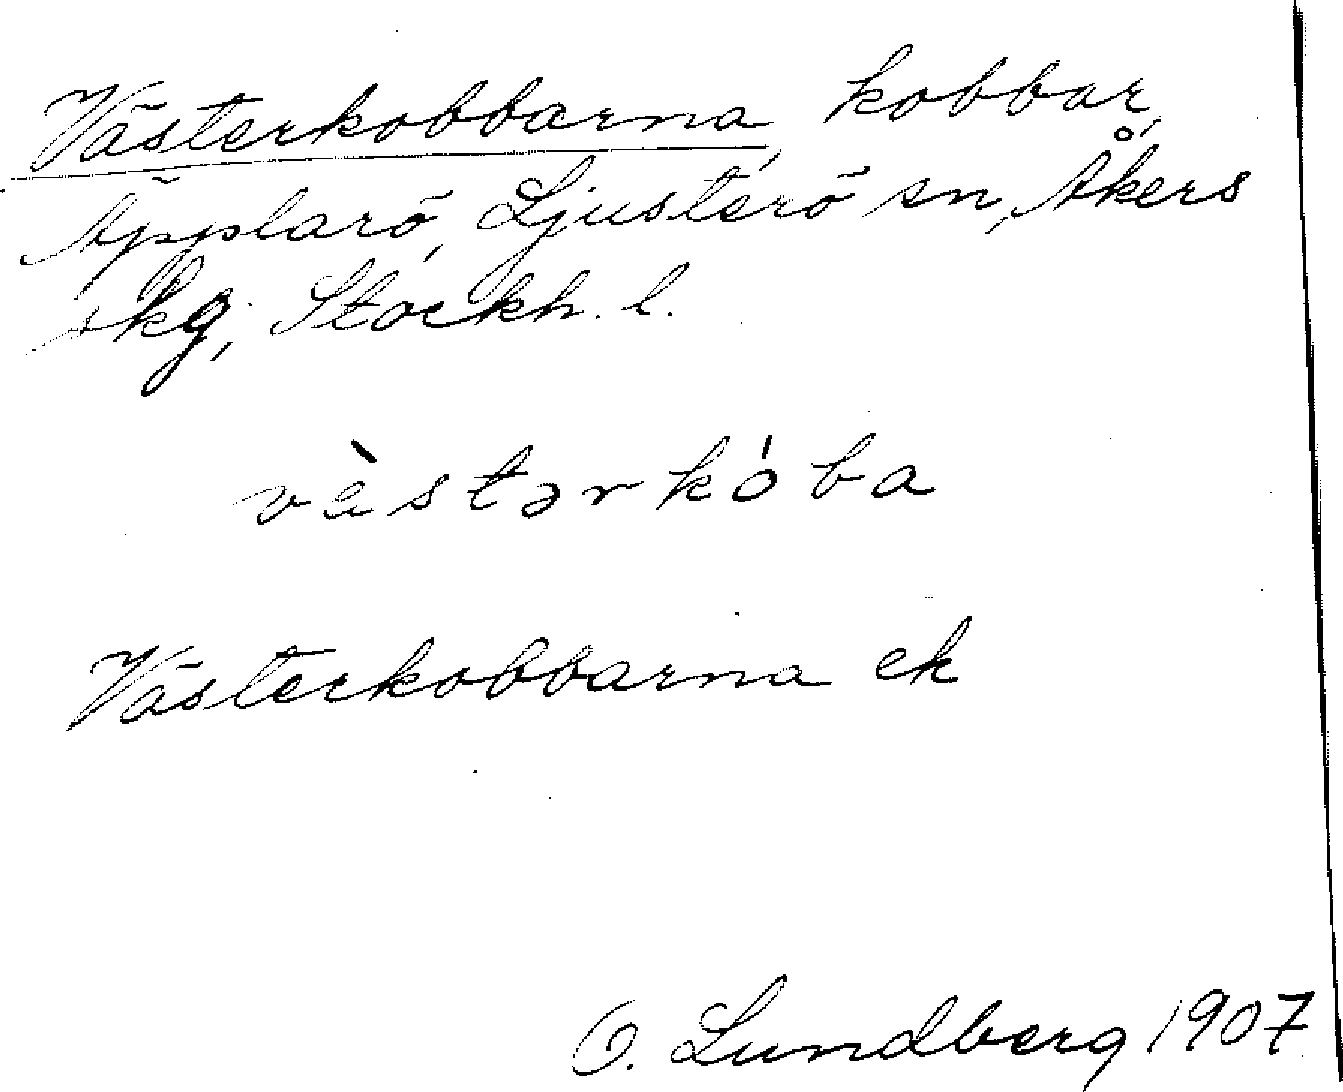 Västerkobbarna, kobbar,
Äpplarö, Ljusterö sn, Åkers
skg, Stockh. l.
vàstərkóba
Västerkobbarna ek
O. Lundberg 1907